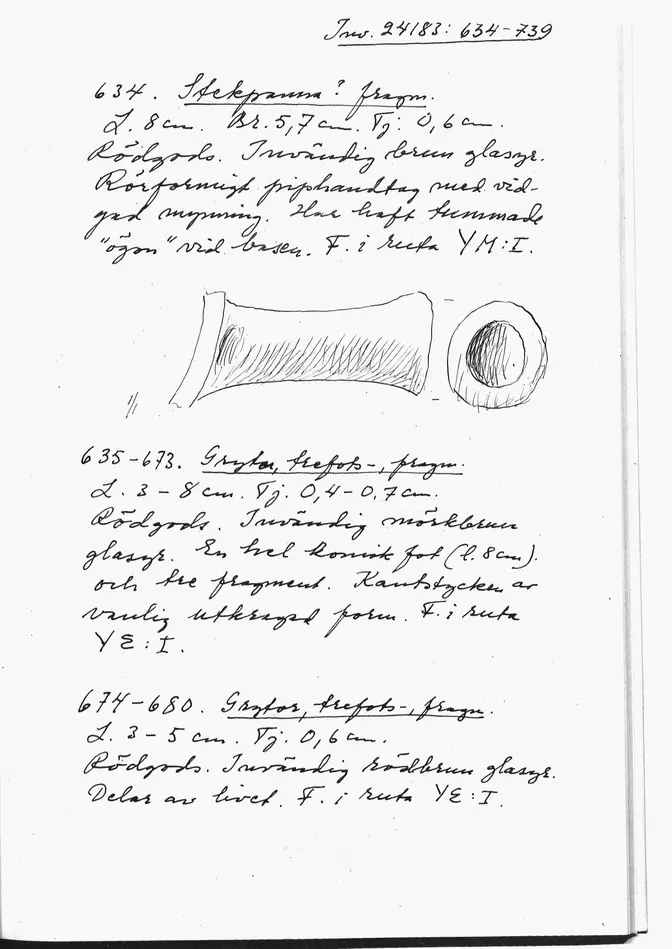 Inv. 24183: 634-739
634. Stekpanna? fragm.
L. 8 cm. Br. 5,7 cm. Tj. 0,6 cm.
Rödgods. Invändig brun glasyr.
Rörformigt piphandtag med vid-
gad mynning. Har haft tummade
"ögon" vid basen. F. i ruta YM:I.
1/1
635-673. Grytor, trefots-, fragm.
L. 3-8 cm. Tj. 0,4-0,7 cm.
Rödgods. Invändig mörkbrun
glasyr. En hel konisk fot (l. 8 cm).
och tre fragment. Kantstycken av
vanlig utkragad form. F. i ruta
YE:I.
674-680. Grytor, trefots-, fragm.
L. 3-5 cm. Tj. 0,6 cm.
Rödgods. Invändig rödbrun glasyr.
Delar av livet. F. i ruta YE:I.